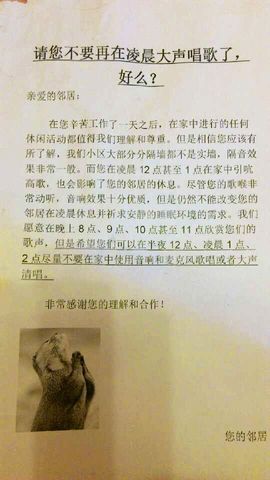 请您不要再在凌晨大声唱歌了，
好么？
亲爱的邻居：
在您辛苦工作了一天之后，在家中进行的任何
休闲活动都值得我们理解和尊重。但是相信您应该有
所了解，我们小区大部分分隔墙都不是实墙，隔音效
果非常一般。而您在凌晨 12 点甚至 1 点在家中引吭
高歌，也会影响了您的邻居的休息。尽管您的歌喉非
常动听，音响效果十分优质，但是仍然不能改变您的
邻居在凌晨休息并祈求安静的睡眠环境的需求。我们
愿意在晚上 8 点、9 点、10 点甚至 11 点欣赏您们的
歌声，但是希望您们可以在半夜 12 点、凌晨 1 点、
2 点尽量不要在家中使用音响和麦克风歌唱或者大声
清唱。
非常感谢您的理解和合作！
您的邻居